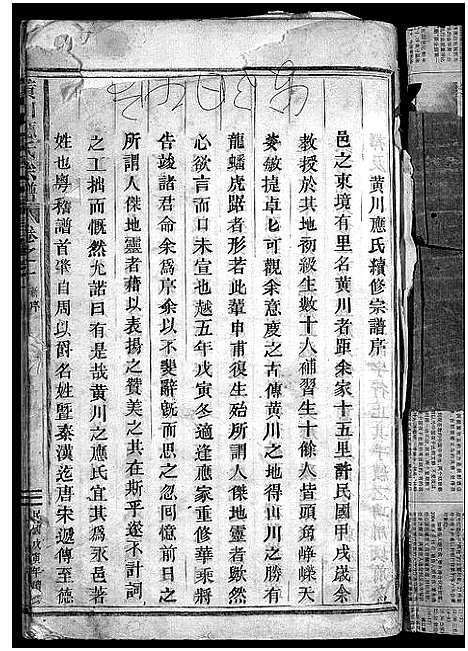 黃川應氏續修宗譜序
邑之東境有里名黃川者距余家十五里許民國甲戌歲余
教授於其地初級生數十人補習生十餘人皆頭角崢嶸天
姿敏捷卓匕可觀余意度之古傳黃川之地得山川之勝有
龍蟠虎踞者形若此輩申甫復生殆所謂人傑地靈者歟然
心欲言而口未宣也越五年戊寅冬適逢應家重修華乘將
告竣諸君命余爲序余以不嫻辭旣而思之忽回憶前日之
所謂人傑地靈者藉以表揚之贊美之其在斯乎遂不計詞
之工拙而慨然允諾曰有是哉黃川之應氏宜其爲永邑著
姓也粵稽譜首肇自周以爵名姓暨秦漢迄唐宋遞傳至德
黃川應氏宗譜 卷之一 序
民國戊寅年續修